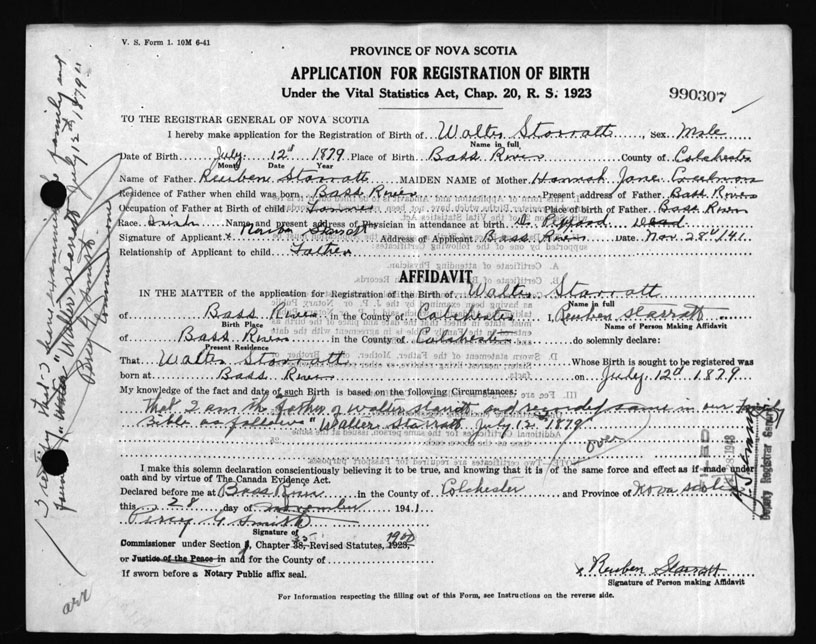 V. S. Form 1. 10M 6-41
PROVINCE OF NOVA SCOTIA
APPLICATION FOR REGISTRATION OF BIRTH
Under the Vital Statistics Act, Chap. 20, R. S. 1923
990307
TO THE REGISTRAR GENERAL OF NOVA SCOTIA
I hereby make application for the Registration of Birth of Walter Starratt, Sex Male
Name in full
Date of Birth July 12d 1879 Place of Birth Bass River County of Colchester
Month Date Year
Name of Father Reuben Starratt MAIDEN NAME of Mother Hannah Jane
Residence of Father when child was born Bass River Present address of Father Bass River
Occupation of Father at Birth of child Farmer Place of Birth of Father Bass River
Race Irish Name and present address of Physician in attendance at birth Dr. Dead
Signature of Applicant x Reuben Starratt Address of Applicant Bass River Date Nov. 28th/41
Relationship of Applicant to child Father
AFFIDAVIT
IN THE MATTER of the application for Registration of the Birth of Walter Starratt
Name in full
of Bass River in the County of Colchester I, Reuben Starratt
Birth Place Name of Person Making Affidavit
of Bass River in the County of Colchester do solemnly declare:
Present Residence
That Walter Starratt Whose Birth is sought to be registered was
born at Bass River on July 12d 1879
My knowledge of the fact and date of such Birth is based on the following Circumstances:
That I am the father of Walter Starratt and recorded same in our family
Bible as follows "Walter Starratt July 12, 1879"
over
I make this solemn declaration conscientiously believing it to be true, and knowing that it is of the same force and effect as if made under
oath and by virtue of The Canada Evidence Act.
Declared before me at Bass River in the County of Colchester and Province of Nova Scotia
this 28 day of November 1941
Percy G Smith
Signature of
Commissioner under Section , Chapter 38, 35 Revised Statutes, 1923, 1900
or Justice of the Peace in and for the County of
If sworn before a Notary Public affix seal.
x Reuben Starratt
Signature of Person making Affidavit
For Information respecting the filling out of this Form, see Instructions on the reverse side.
I certify that I have examined the family and
found "Walter Starratt July 12th, 1879"
Percy G. Smith
Commissioner
Deputy Registrar General